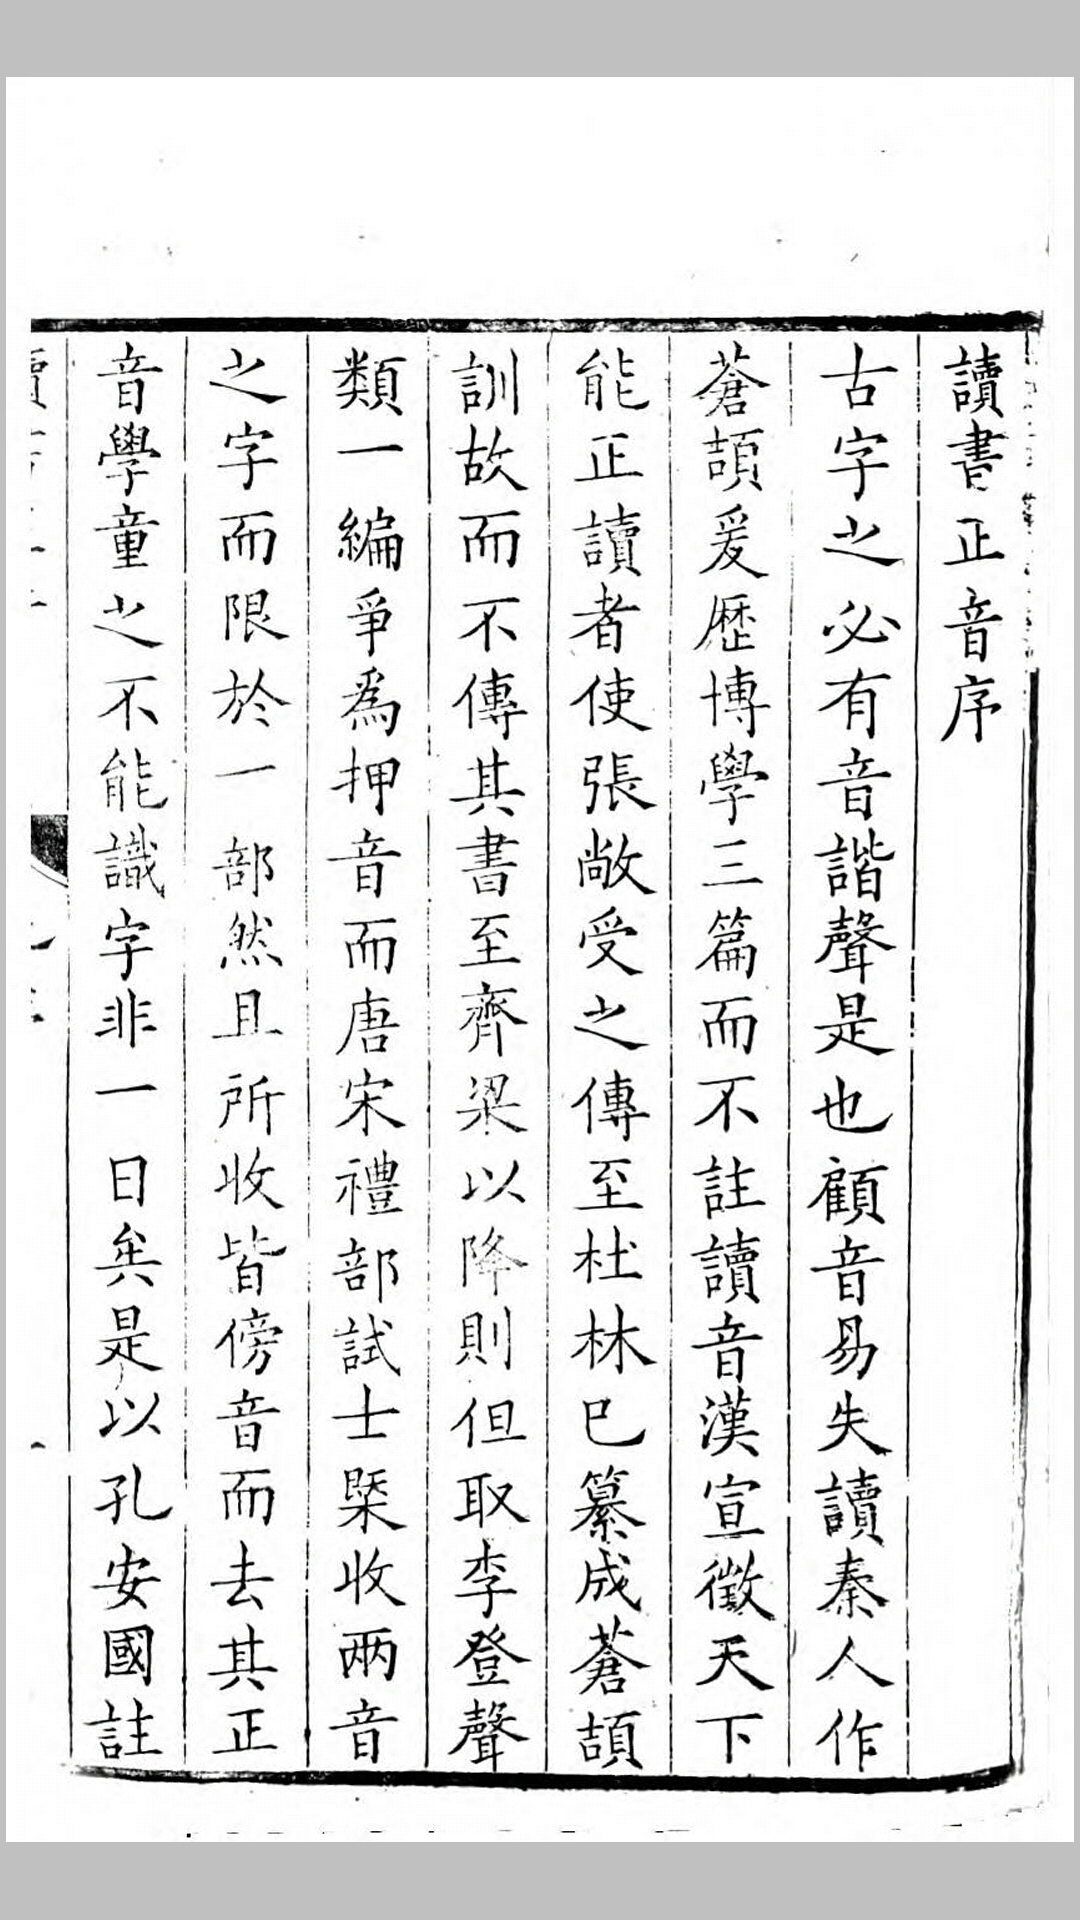 讀書正音序
古字之必有音諧聲是也顧音易失讀秦人作
蒼頡爰歷博學三篇而不註讀音漢宣徵天下
能正讀者使張敞受之傳至杜林巳纂成蒼頡
訓故而不傳其書至齊梁以降則但取李登聲
類一編爭為押音而唐宋禮部試士槩收兩音
之字而限於一部然且所收皆傍音而去其正
音學童之不能識字非一日矣是以孔安國註